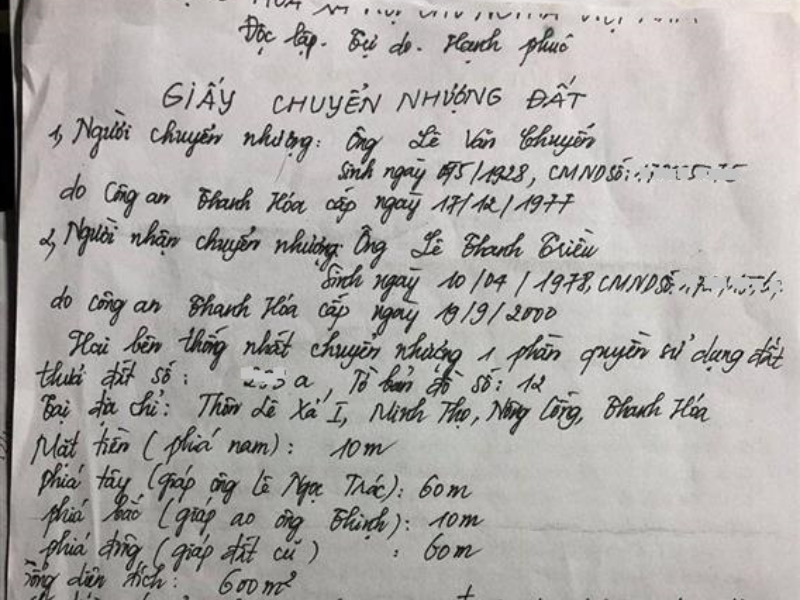 HÒA XÃ HỘI CHỦ NGHĨA VIỆT NAM
Độc lập. Tự do. Hạnh phúc
GIẤY CHUYỂN NHƯỢNG ĐẤT
1, Người chuyển nhượng: Ông Lê Văn Chuyến
Sinh ngày /5/1928, CMND Số:
do Công an Thanh Hóa cấp ngày 17/12/1977
2, Người nhận chuyển nhượng: Ông Lê Thanh Triều
Sinh ngày 10/04/1978, CMND Số
do công an Thanh Hóa cấp ngày 19/9/2000
Hai bên thống nhất chuyển nhượng 1 phần quyền sử dụng đất
thưả đất số: a, Tờ bản đồ số: 12
Tại địa chỉ: Thôn Lê Xá I, Minh Thọ, Nông Cống, Thanh Hóa
Mặt tiền (phiá nam): 10m
phiá tây (giáp ông Lê Ngọc Trác): 60m
phiá bắc (giáp ao ông Thịnh): 10m
phiá đông (giáp đất cũ) : 60m
Tổng diện tích: 600m²